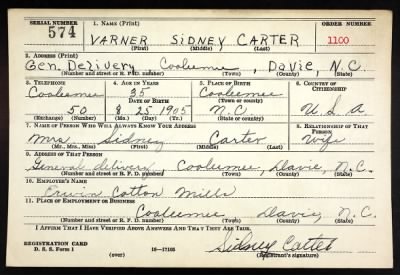 SERIAL NUMBER 1. NAME (Print) ORDER NUMBER
574 VARNER SIDNEY CARTER 1100
(First) (Middle) (Last)
2. ADDRESS (Print)
Gen. Delivery Cooleemee, Davie, N.C.
(Number and street or R. F. D. number) (Town) (County) (State)
3. TELEPHONE 4. AGE IN YEARS 5. PLACE OF BIRTH 6. COUNTRY OF CITIZENSHIP
Cooleemee 35 Cooleemee
DATE OF BIRTH (Town or county)
50 8 25 1905 N.C. U.S.A.
(Exchange) (Number) (Mo.) (Day) (Yr.) (State or country)
7. NAME OF PERSON WHO WILL ALWAYS KNOW YOUR ADDRESS 8. RELATIONSHIP OF THAT PERSON
Mrs Sidney Carter Wife
(Mr., Mrs., Miss) (First) (Middle) (Last)
9. ADDRESS OF THAT PERSON
General delivery Cooleemee, Davie, N.C.
(Number and street or R. F. D. number) (Town) (County) (State)
10. EMPLOYER'S NAME
Erwin Cotton Mills
11. PLACE OF EMPLOYMENT OR BUSINESS
Cooleemee Davie, N.C.
(Number and street or R. F. D. number) (Town) (County) (State)
I AFFIRM THAT I HAVE VERIFIED ABOVE ANSWERS AND THAT THEY ARE TRUE.
REGISTRATION CARD
D. S. S. Form 1 (over) 16—17105 Sidney Carter
(Registrant's signature)